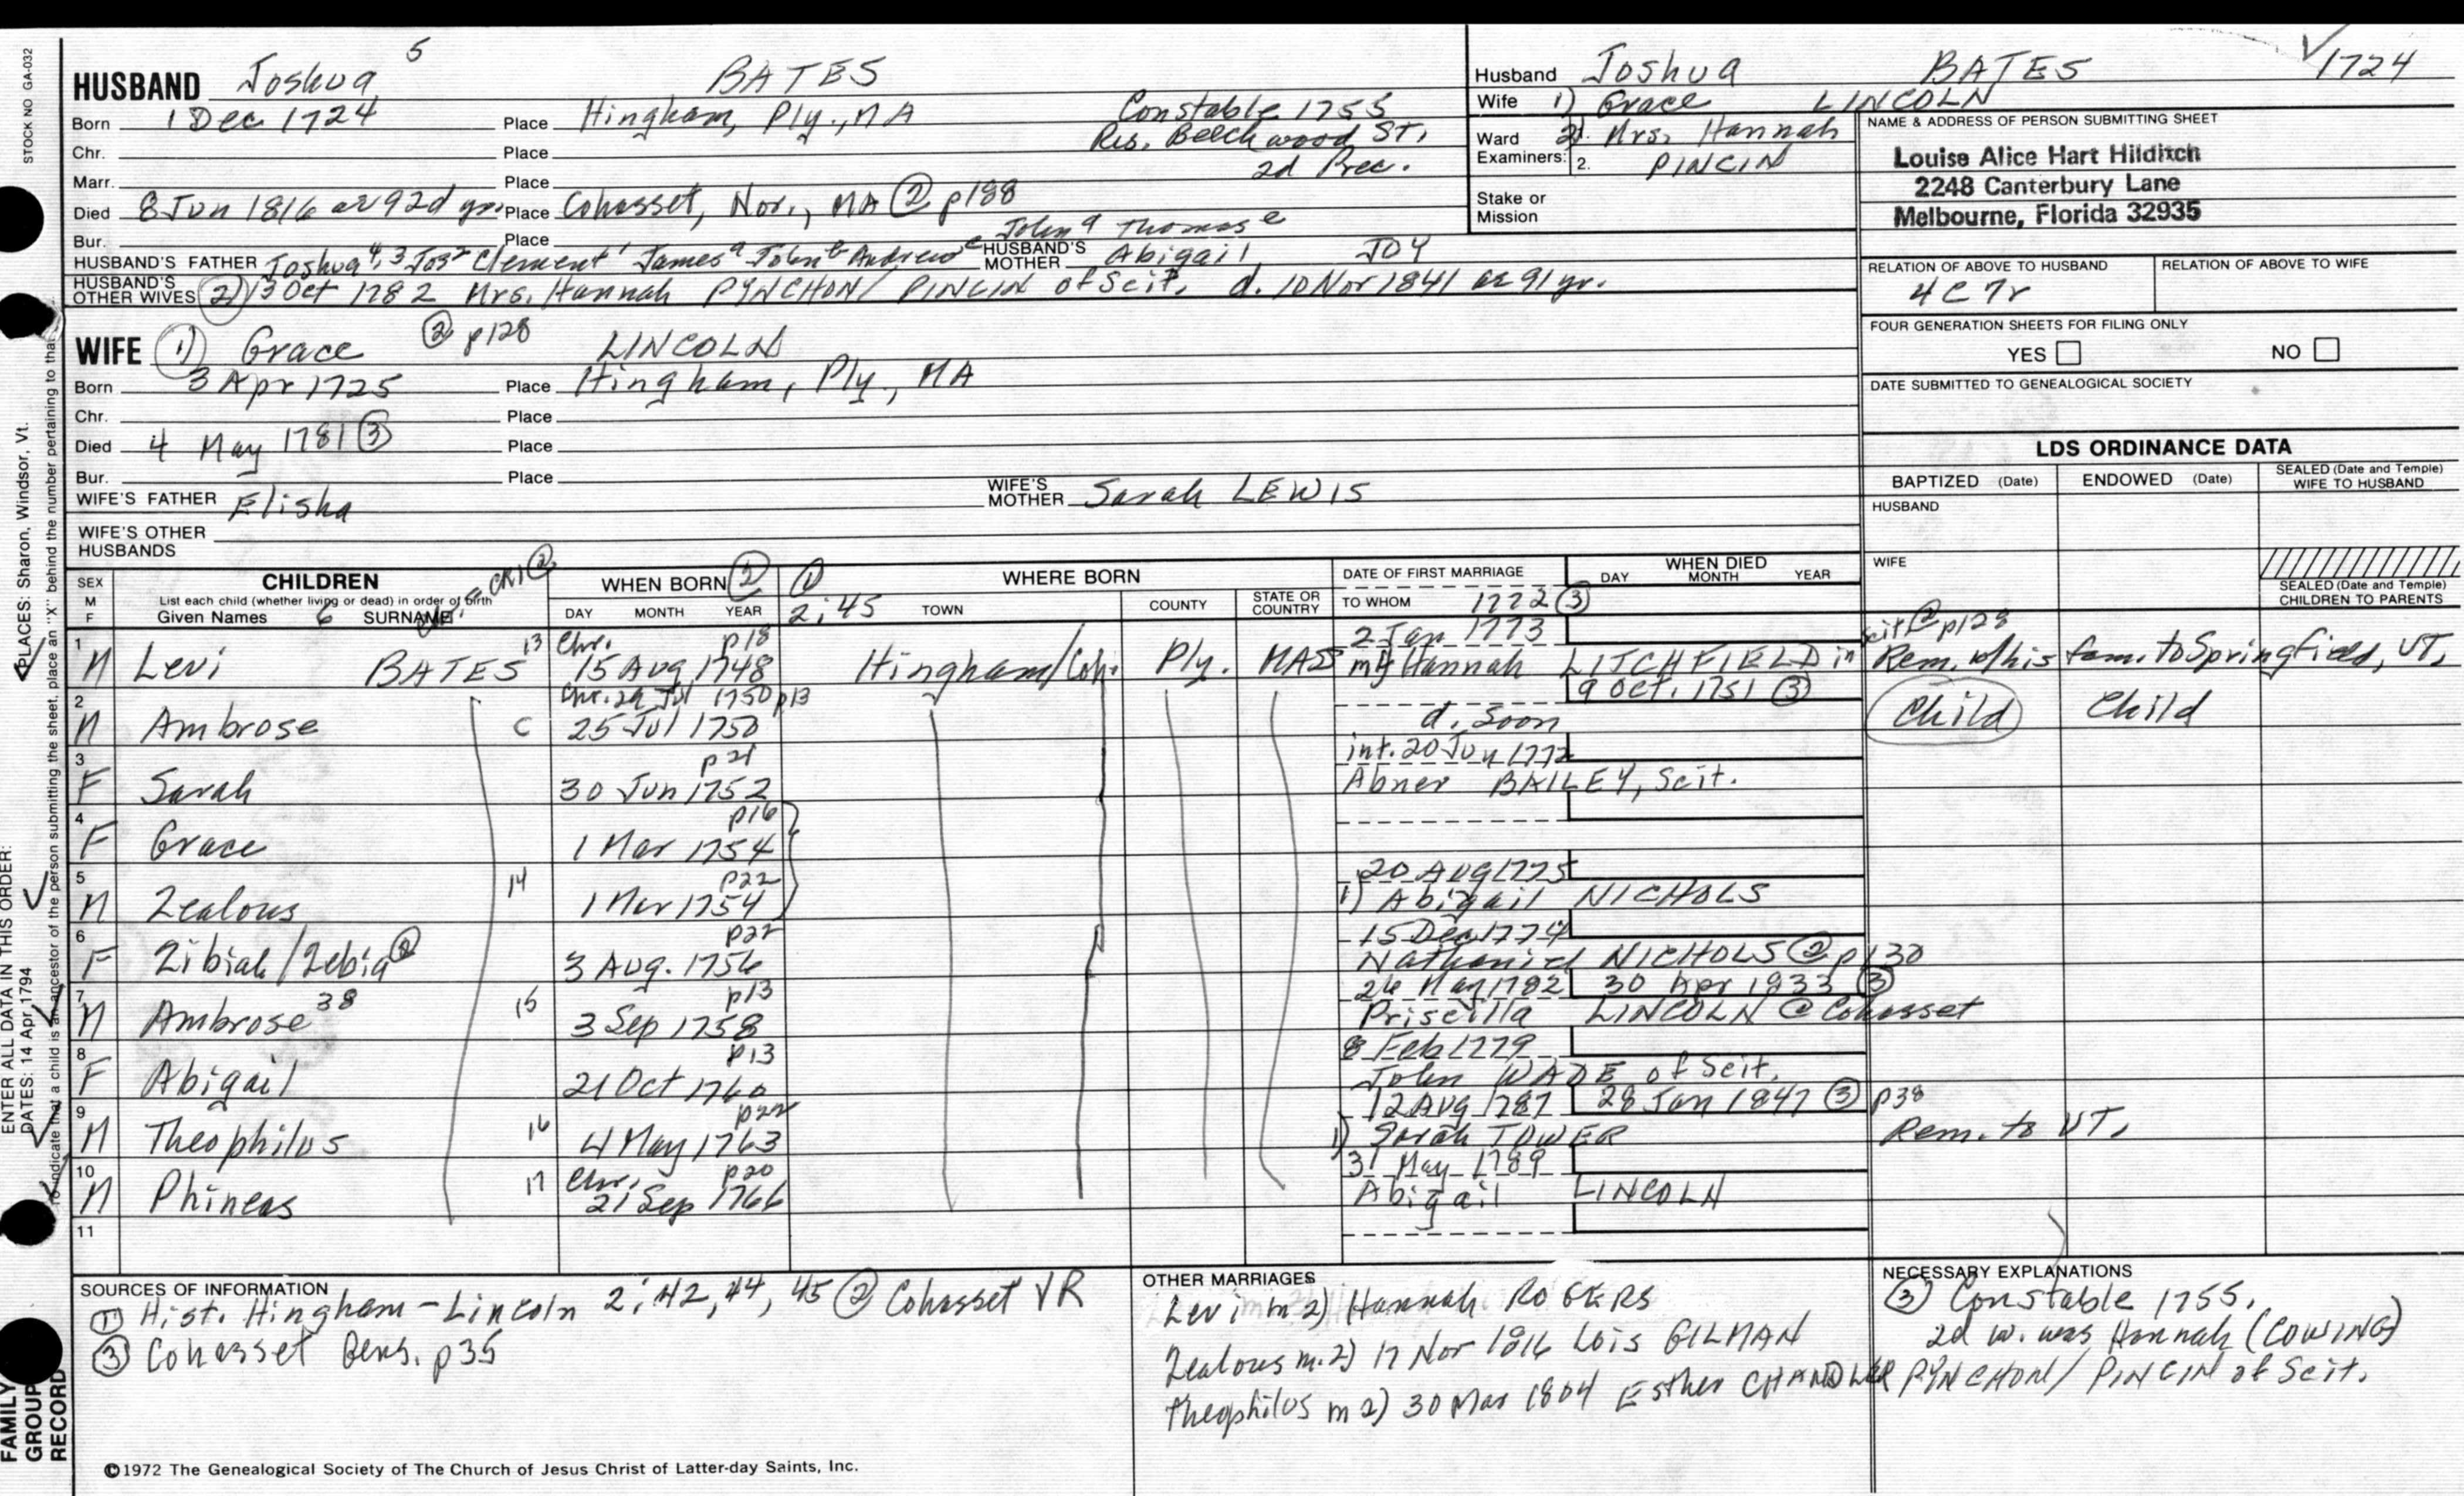 STOCK NO GA-032
HUSBAND Joshua 5 BATES
Born 1 Dec 1724 Place Hingham, Ply., MA Constable 1755
Chr. Place Res. Beechwood St.,
Marr. Place 2d Prec.
Died 8 Jun 1816 ae 92d yr. Place Cohasset, Nor., MA ② p188
Bur. Place John d Thomas e
HUSBAND'S FATHER Joshua 4, 3 Jos 2 Clement 1 James a John b Andrew c HUSBAND'S MOTHER Abigail JOY
HUSBAND'S OTHER WIVES 2) 13 Oct 1782 Mrs. Hannah PYNCHON/ PINCIN of Scit. d. 10 Nov 1841 ae 91 yr.
WIFE 1) Grace ② p128 LINCOLN
Born 3 Apr 1725 Place Hingham, Ply., MA
Chr. Place
Died 4 May 1781 ③ Place
Bur. Place
WIFE'S FATHER Elisha WIFE'S MOTHER Sarah LEWIS
WIFE'S OTHER HUSBANDS
Husband Joshua BATES 1724
Wife 1) Grace LINCOLN
Ward 2). Mrs. Hannah
Examiners: 2. PINCIN
Stake or Mission
NAME & ADDRESS OF PERSON SUBMITTING SHEET
Louise Alice Hart Hilditch
2248 Canterbury Lane
Melbourne, Florida 32935
RELATION OF ABOVE TO HUSBAND RELATION OF ABOVE TO WIFE
4C7r
FOUR GENERATION SHEETS FOR FILING ONLY
YES NO
DATE SUBMITTED TO GENEALOGICAL SOCIETY
LDS ORDINANCE DATA
BAPTIZED (Date) ENDOWED (Date) SEALED (Date and Temple) WIFE TO HUSBAND
HUSBAND
WIFE
SEALED (Date and Temple) CHILDREN TO PARENTS
SEX M F CHILDREN WHEN BORN ② ① WHERE BORN DATE OF FIRST MARRIAGE WHEN DIED
List each child (whether living or dead) in order of birth DAY MONTH YEAR 2:45 TOWN COUNTY STATE OR COUNTRY TO WHOM 1772 ③ DAY MONTH YEAR
Given Names 6 SURNAME CR1 ②
1 13 Chr. p18 2 Jan 1773 Scit @ p128
M Levi BATES 15 Aug 1748 Hingham/Coh. Ply. MAS Hannah LITCHFIELD in Rem. w/his fam. to Springfield, VT,
2 Chr. 29 Jul 1750 p13 9 Oct. 1751 ③
M Ambrose C 25 Jul 1750 d. soon Child Child
3 p21 int. 20 Jun 1772
F Sarah 30 Jun 1752 Abner BAILEY, Scit.
4 p16
F Grace 1 Mar 1754
5 14 p22 20 Aug 1775
M Zealous 1 Mar 1754 1) Abigail NICHOLS
6 p22 15 Dec 1774
F Zibiah/Zebia ② 3 Aug. 1756 Nathaniel NICHOLS @ p130
7 38 15 p13 26 May 1782 30 Apr 1833 ③
M Ambrose 3 Sep 1758 Priscilla LINCOLN @ Cohasset
8 p13 8 Feb 1779
F Abigail 21 Oct 1760 John WADE of Scit.
9 16 p22 12 Aug 1787 28 Jan 1847 ③ p38
M Theophilus 4 May 1763 1) Sarah TOWER Rem. to VT,
10 17 Chr. p20 31 May 1789
M Phineas 21 Sep 1766 Abigail LINCOLN
11
SOURCES OF INFORMATION
① Hist. Hingham - Lincoln 2: 42, 44, 45 ② Cohasset VR
③ Cohasset Gens. p35
OTHER MARRIAGES
Levi m 2) Hannah ROGERS
Zealous m. 2) 17 Nov 1816 Lois GILMAN
Theophilus m 2) 30 Mar 1804 Esther CHANDLER
NECESSARY EXPLANATIONS
③ Constable 1755.
2d w. was Hannah (COWING)
PYNCHON/ PINCIN of Scit.
©1972 The Genealogical Society of The Church of Jesus Christ of Latter-day Saints, Inc.
ENTER ALL DATA IN THIS ORDER:
DATES: 14 Apr 1794
PLACES: Sharon, Windsor, Vt.
To indicate that a child is an ancestor of the person submitting the sheet, place an "X" behind the number pertaining to that
FAMILY GROUP RECORD